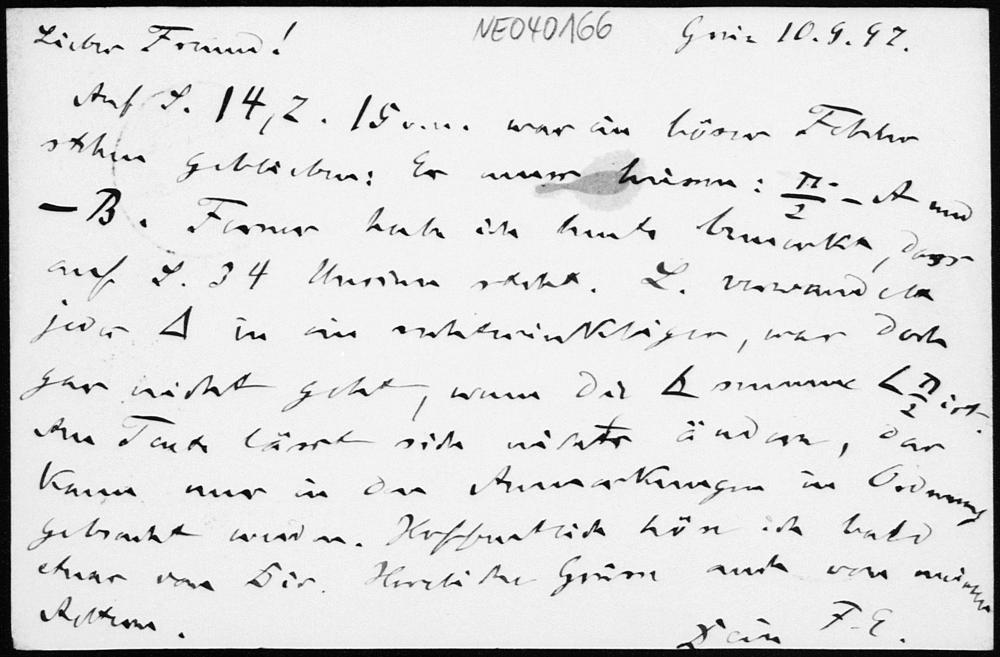 Lieber Freund! NE040166 Greiz 10.9.97.
Auf S. 14, Z. 15 v.u. war ein böser Fehler
stehen geblieben: Es muss heissen: π/2 - A und
- B. Ferner habe ich heute bemerkt, dass
auf S. 34 Unsinn steht. L. verwandelt
jedes Δ in ein rechtwinkliges, was doch
gar nicht geht, wenn die Δ summe < π/2 ist.
Am Texte lässt sich nichts ändern, das
kann nur in den Anmerkungen in Ordnung
gebracht werden. Hoffentlich höre ich bald
etwas von Dir. Herzliche Grüsse auch von meinen
Aeltern.
Dein F.E.